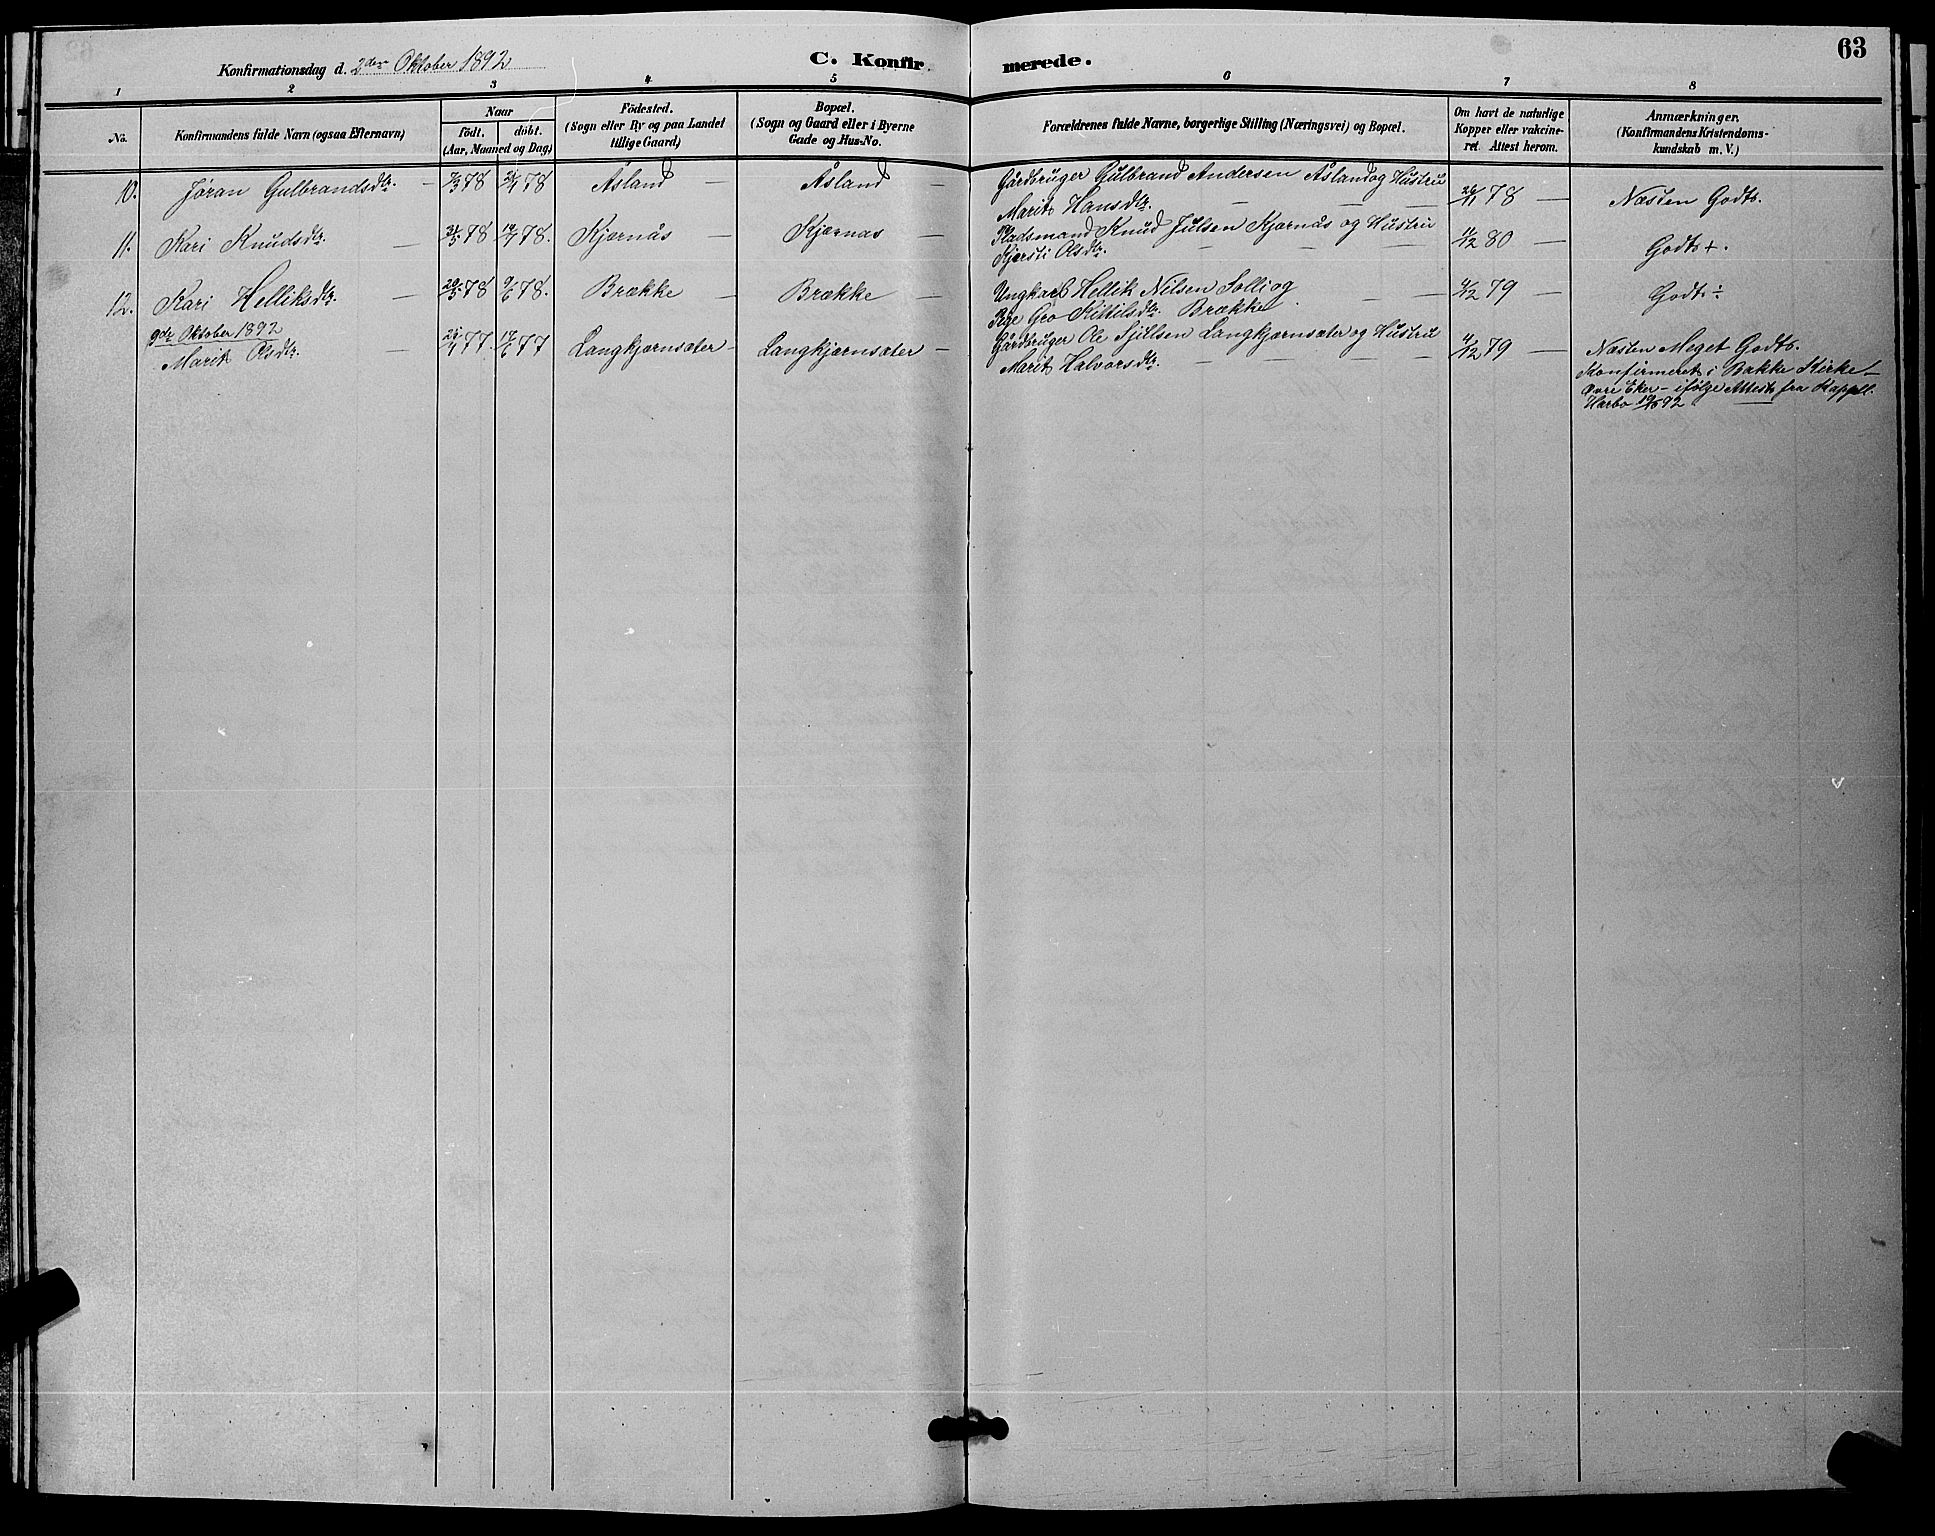 63
Konfirmationsdag d. 2den Oktober 1892
C. Konfirmerede.
1 2 3 4 5 6 7 8
No.
Konfirmandens fulde Navn (ogsaa Efternavn)
Naar
födt. döbt.
(Aar, Maaned og Dag)
Födested.
(Sogn eller By og paa Landet
tillige Gaard)
Bopæl.
(Sogn og Gaard eller i Byerne
Gade og Hus-No.
Forældrenes fulde Navne, borgerlige Stilling (Næringsvei) og Bopæl.
Om havt de naturlige
Kopper eller vakcine-
ret. Attest herom.
Anmærkninger.
(Konfirmandens Kristendoms-
kundskab m. V.)
10. Jøran Gulbrandsdtr. — 78 78 Åsland — Åsland — Gårdbruger Gulbrand Andersen Åsland og Hustru
Marit Hansdtr. — 78 — Næsten Godt.
11. Kari Knudsdtr. — 78 78. Kjørnås — Kjørnås — Pladsmand Knud Julsen Kjørnås og Hustru
Kjersti Olsdtr. — 80 — Godt +.
12. Kari Helliksdtr. — 78 78. Brække — Brække — Ungkarl Hellik Nilsen Solli og
Pige Gro Kittilsdtr. Brække. — 79 — Godt ÷
9de Oktober 1892
Marit Olsdtr. — 77 77 Langkjærnsæter — Langkjærnsæter — Gårdbruger Ole Sjulsen Langkjærnsæter og Hustru
Marit Halvorsdtr. — 79 — Næsten Meget Godt.
Konfirmeret i Bakke Kirke —
Øvre Eker — ifølge Attest fra Kappel.
Harbo 92